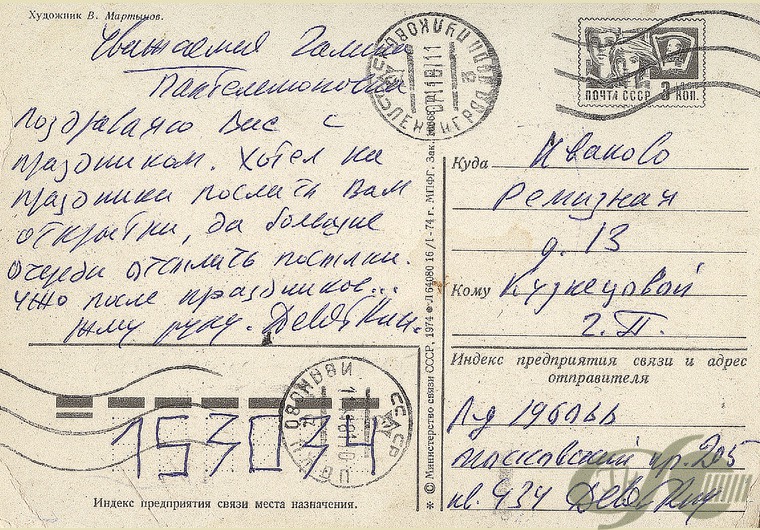 Художник В. Мартынов.
Уважаемая Галина
Пантелеймоновна
Поздравляю Вас с
праздником. Хотел на
праздники послать Вам
открытки, да большие
очереди отсылать посылки.
Ужо после праздников...
Жму руку. Девяткин.
ПОЧТА СССР 3 КОП.
Куда Иваново
Ремизная
д. 13
Кому Кузнецовой
Г.П.
Индекс предприятия связи и адрес
отправителя
Л-д 196066
Московский пр. 205
кв. 434 Девяткин
© Министерство связи СССР, 1974 Л 64080 16/1-74 г. МПФГ. Зак.
ЛЕНИНГРАД
ИВАНОВО
СССР
153034
Индекс предприятия связи места назначения.